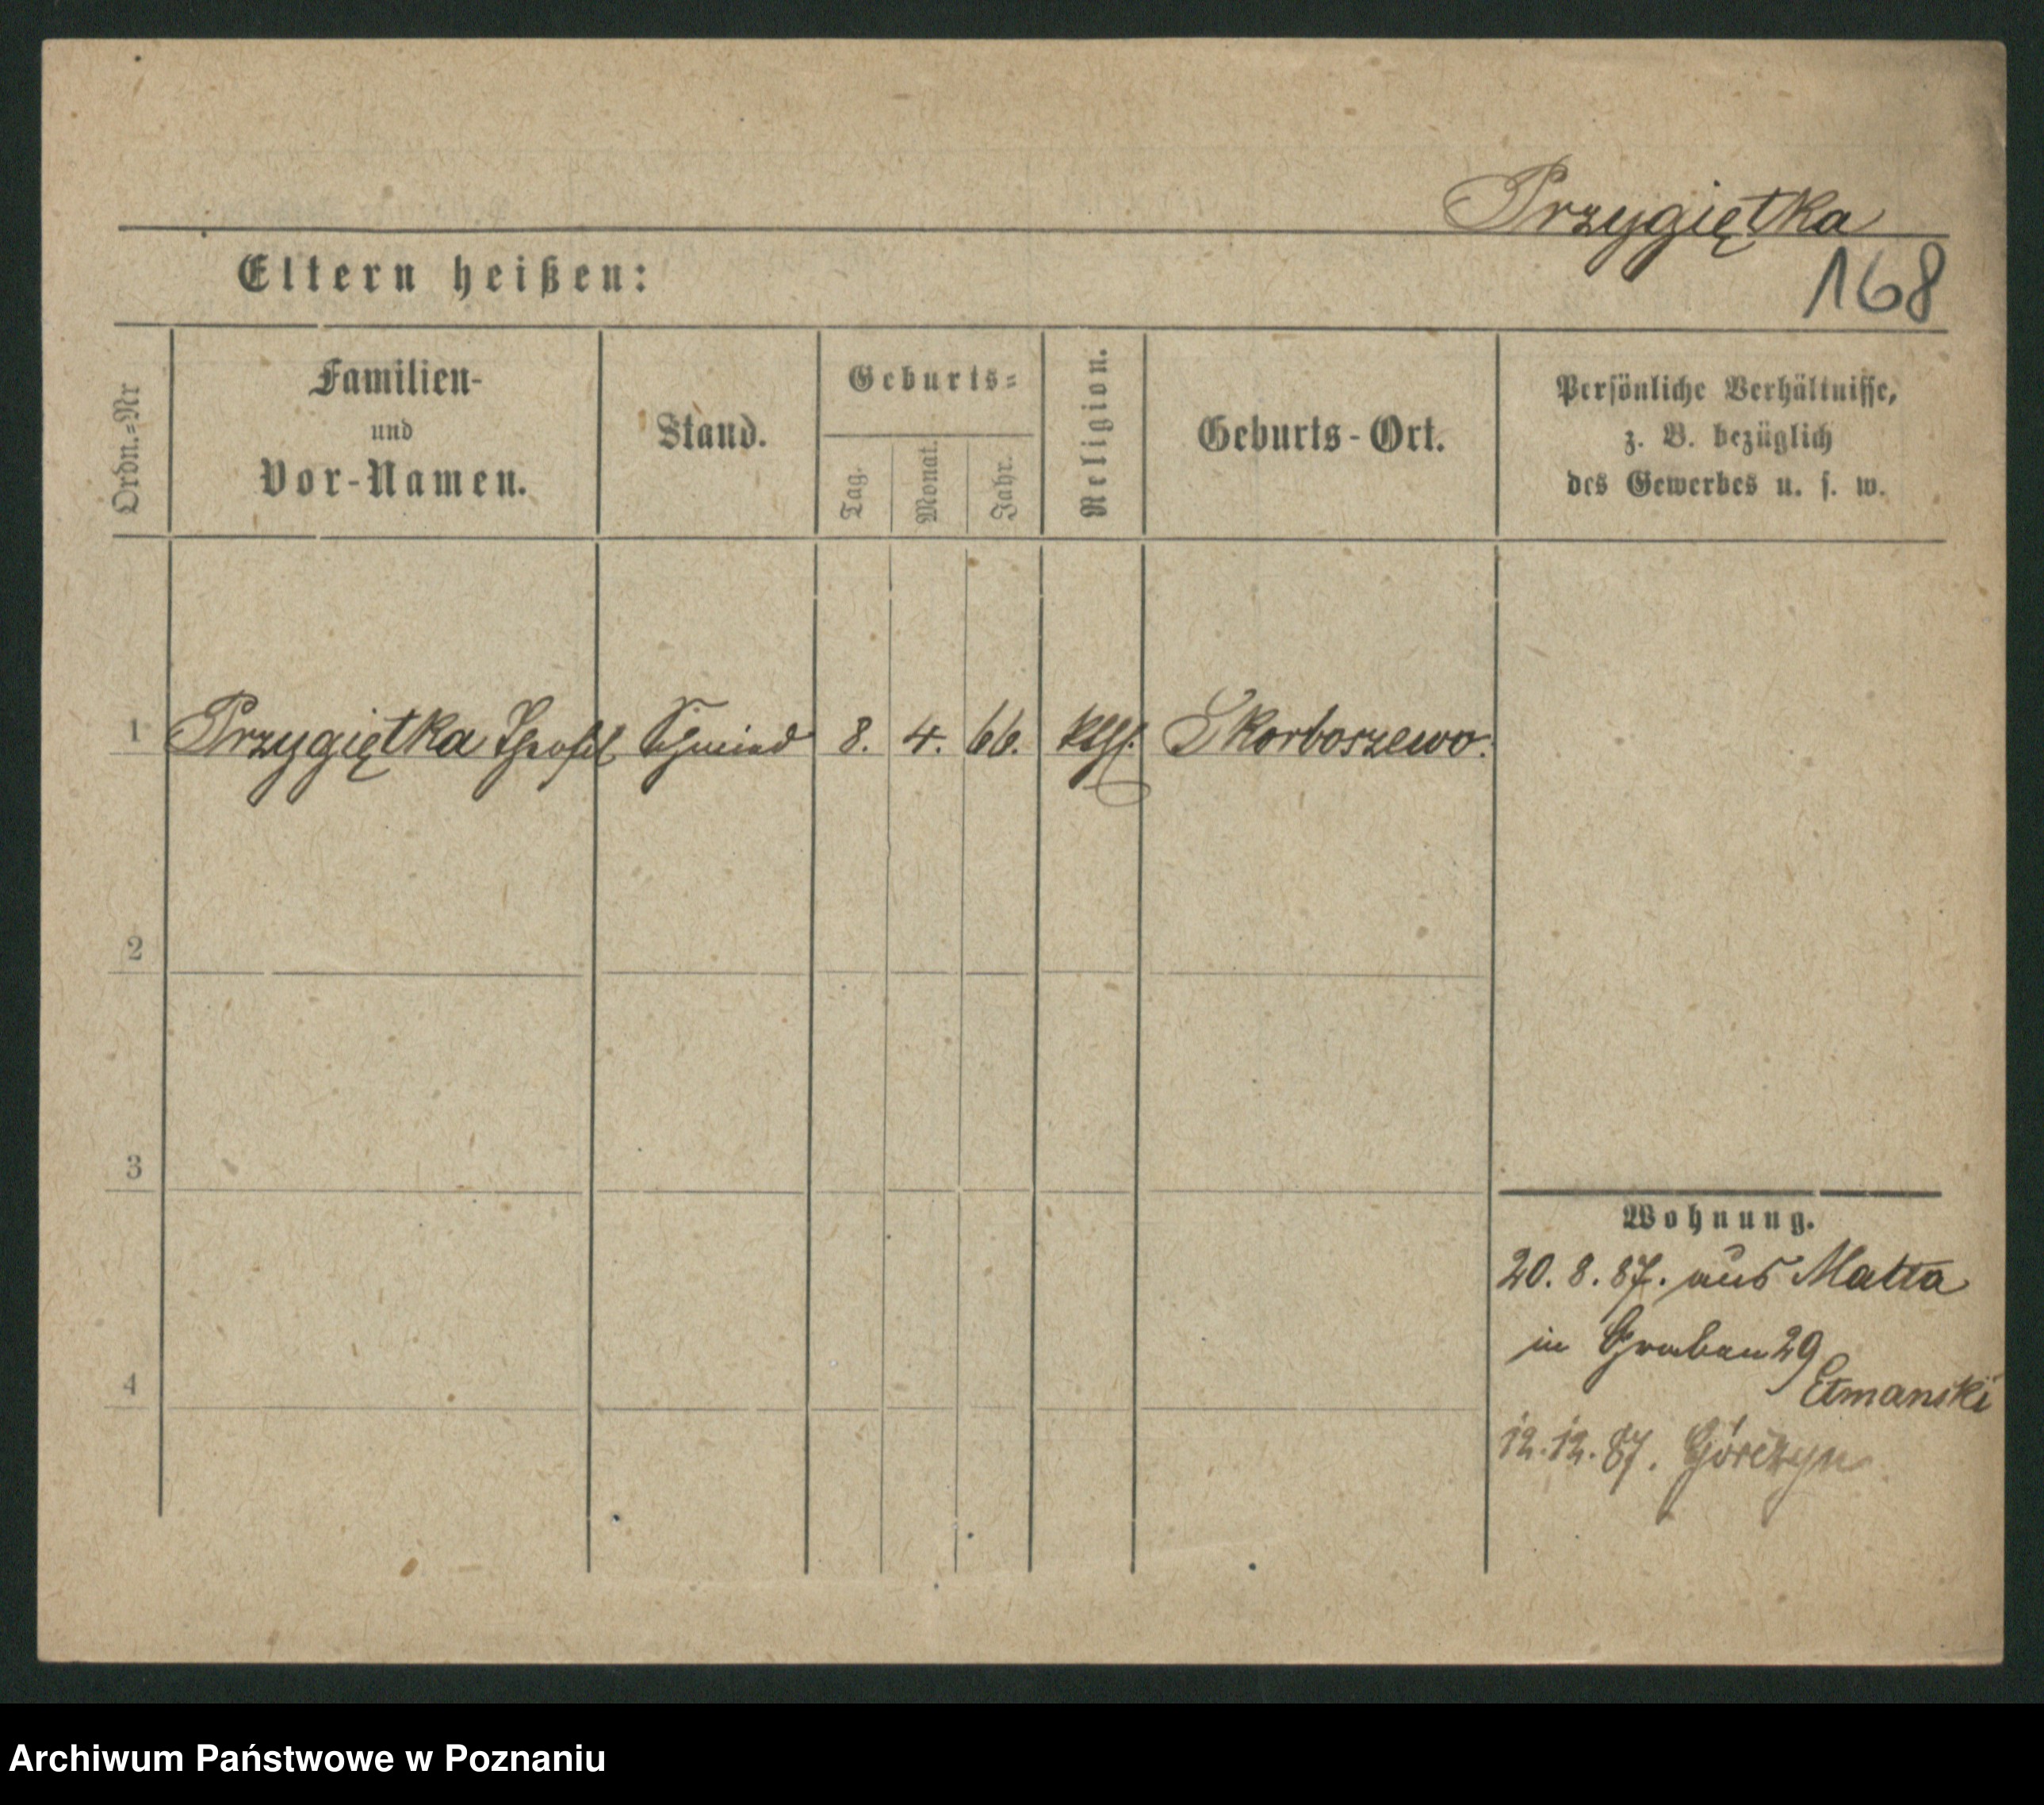 Przygiętka
168
Eltern heißen:
Ordn.=Nr
Familien-
und
Vor-Namen.
Stand.
Geburts=
Tag.
Monat.
Jahr.
Religion.
Geburts-Ort.
Persönliche Verhältnisse,
z. B. bezüglich
des Gewerbes u. s. w.
1 Przygiętka Schmied 8. 4. 66. kth. Skorboszewo.
2
3
4
Wohnung.
20. 8. 87. aus Malta
in Graben 29
Etmanski
12. 12. 87. Górczyn
Archiwum Państwowe w Poznaniu